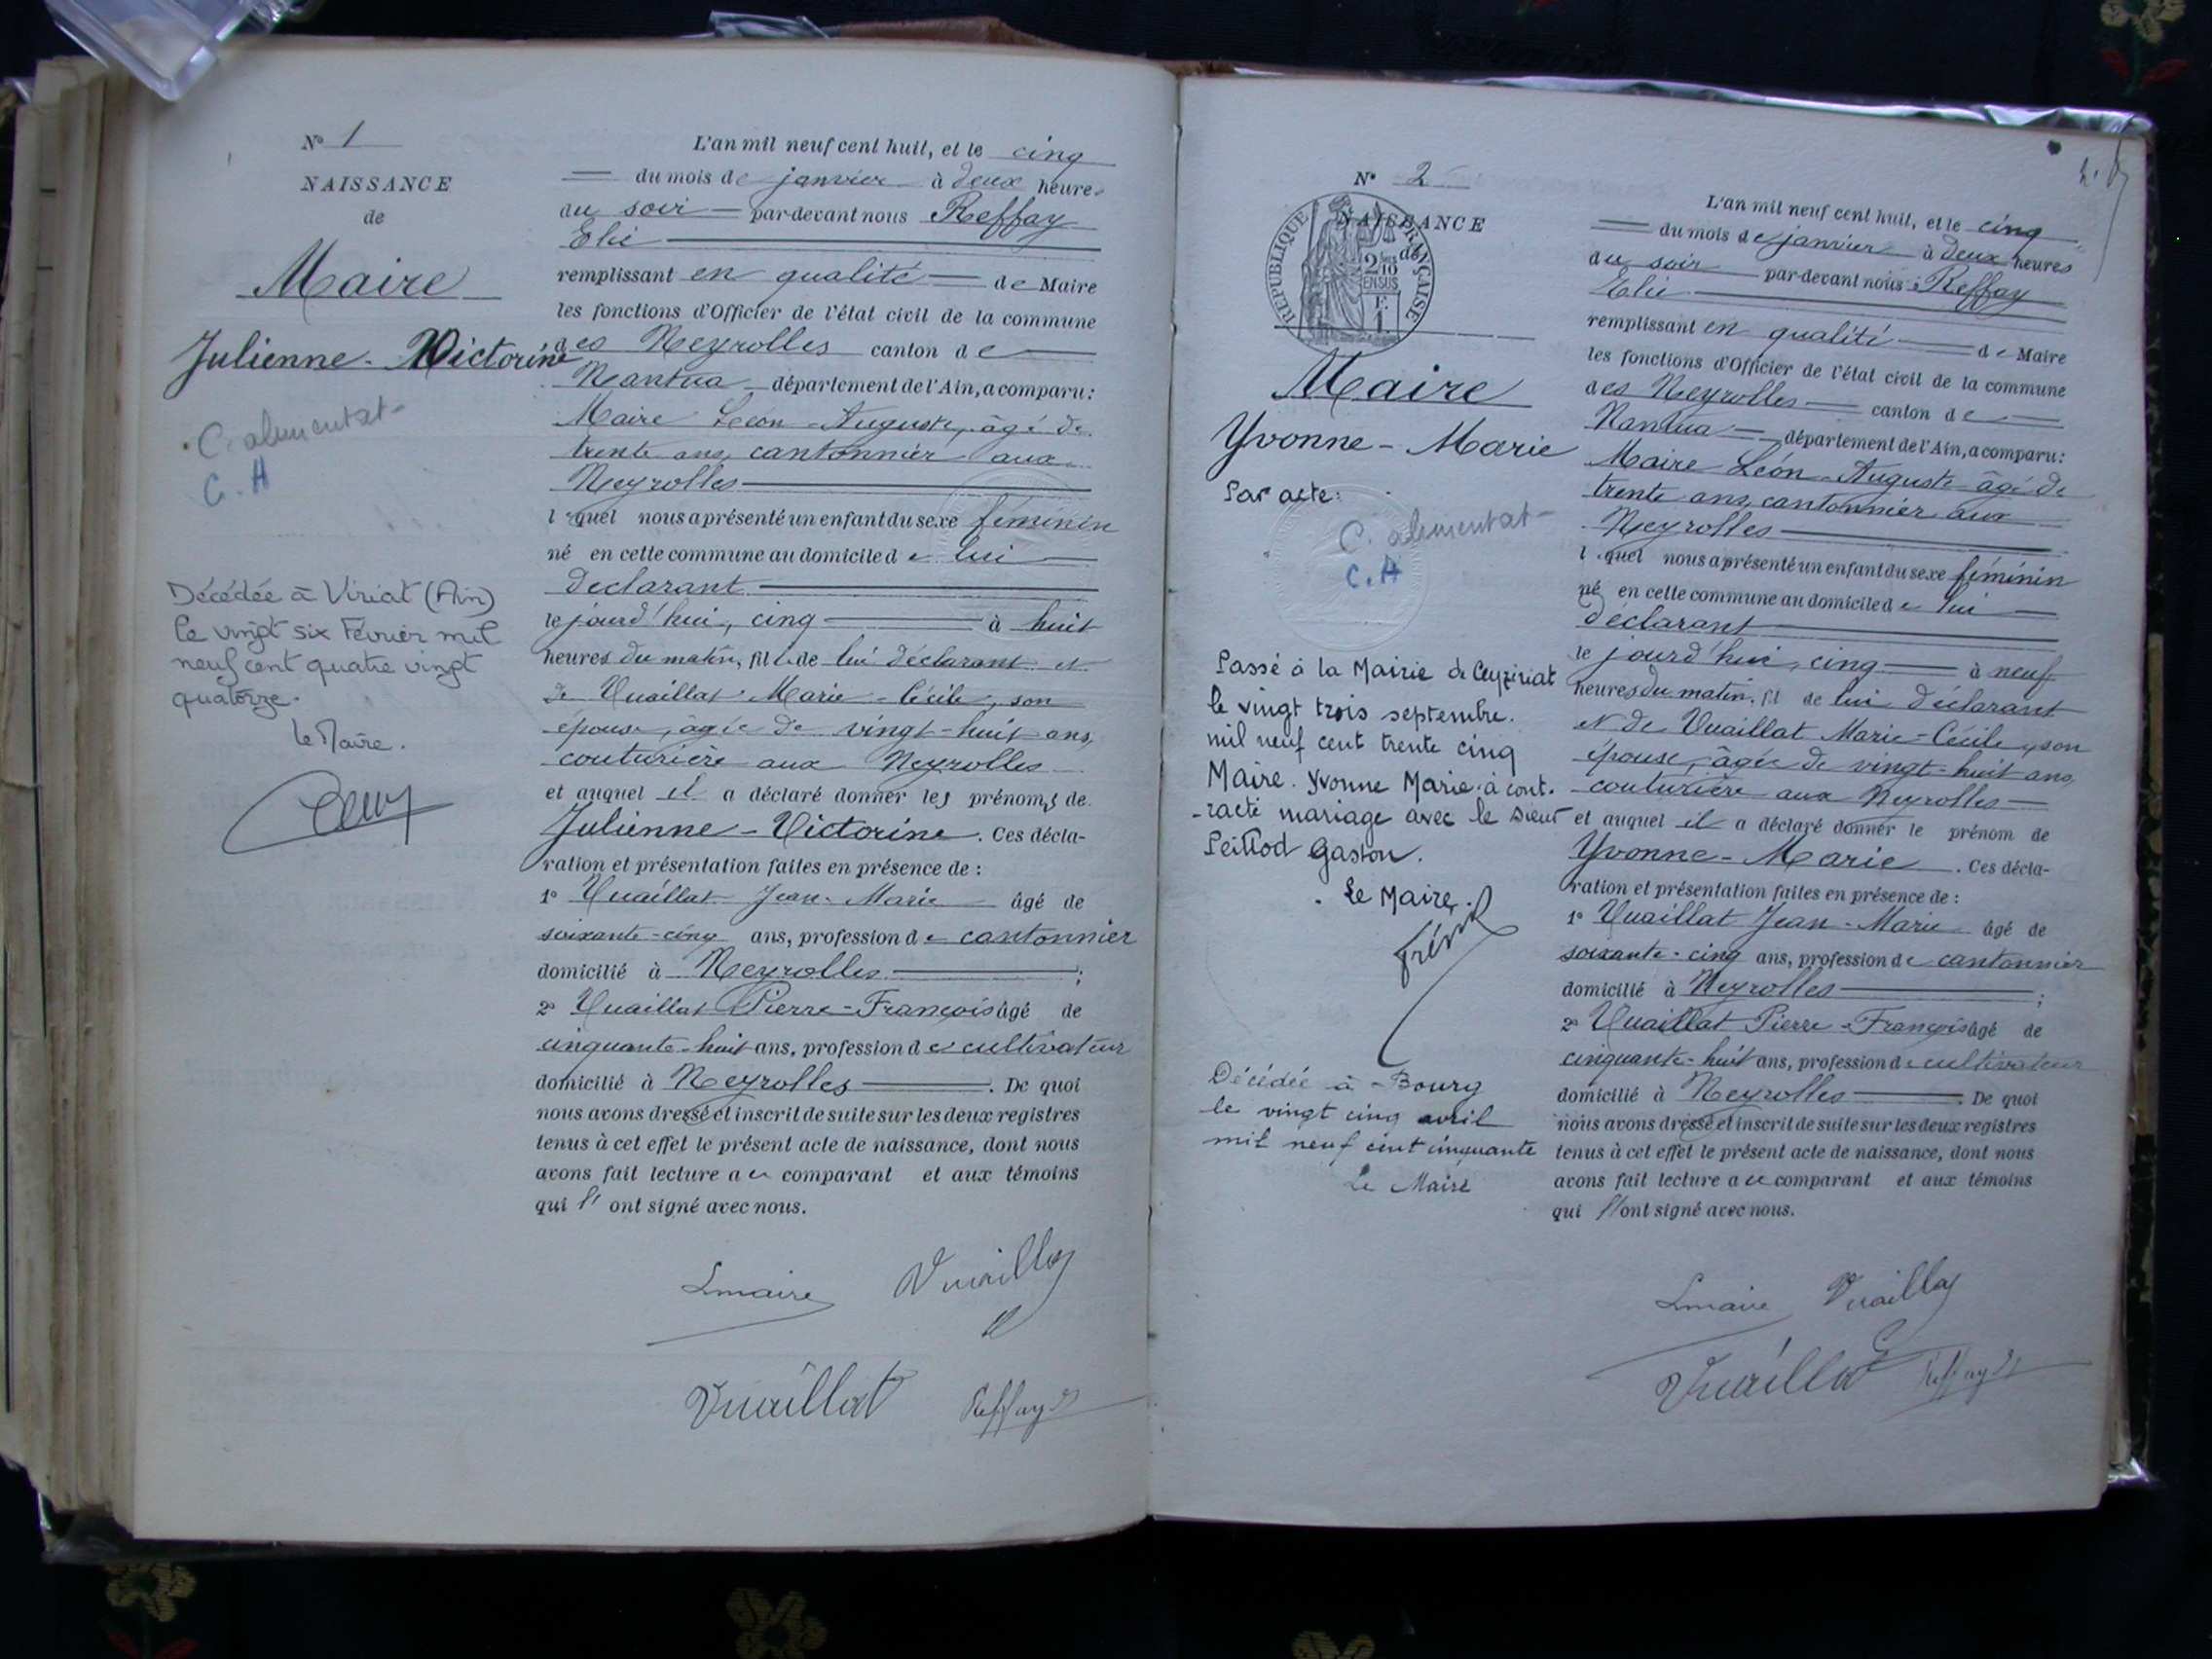 N° 1
NAISSANCE
de
Maire
Julienne-Victorine
C. alimentat-
C. H
Décédée à Viriat (Ain)
le vingt six Février mil
neuf cent quatre vingt
quatorze.
Le Maire.
L'an mil neuf cent huit, et le cinq
du mois de janvier à deux heures
du soir par-devant nous Reffay
Elie
remplissant en qualité de Maire
les fonctions d'Officier de l'état civil de la commune
des Neyrolles canton de
Nantua département de l'Ain, a comparu:
Maire Léon-Auguste, âgé de
trente ans, cantonnier aux
Neyrolles
lequel nous a présenté un enfant du sexe féminin
né en cette commune au domicile de lui
déclarant
le jourd'hui, cinq à huit
heures du matin, fille de lui déclarant et
de Vuaillat Marie-Cécile, son
épouse, âgée de vingt-huit ans,
couturière aux Neyrolles
et auquel il a déclaré donner les prénoms de
Julienne-Victorine. Ces décla-
ration et présentation faites en présence de :
1° Vuaillat Jean-Marie âgé de
soixante-cinq ans, profession de cantonnier
domicilié à Neyrolles ;
2° Vuaillat Pierre-François âgé de
cinquante-huit ans, profession de cultivateur
domicilié à Neyrolles. De quoi
nous avons dressé et inscrit de suite sur les deux registres
tenus à cet effet le présent acte de naissance, dont nous
avons fait lecture au comparant et aux témoins
qui l'ont signé avec nous.
Lmaire Vuaillat
Vuaillat Reffay
N° 2
NAISSANCE
de
RÉPUBLIQUE FRANÇAISE
2/10
EN SUS
Maire
Yvonne-Marie
Par acte:
C. alimentat-
C. H
Passé à la Mairie de Ceyzériat
le vingt trois septembre.
mil neuf cent trente cinq
Maire. Yvonne Marie. à cont.
-racté mariage avec le Sieur
Gaston.
Le Maire.
Décédée à Bourg
le vingt cinq avril
mil neuf cent cinquante
Le Maire
L'an mil neuf cent huit, et le cinq
du mois de janvier à deux heures
du soir par-devant nous Reffay
Elie
remplissant en qualité de Maire
les fonctions d'Officier de l'état civil de la commune
des Neyrolles canton de
Nantua département de l'Ain, a comparu:
Maire Léon-Auguste âgé de
trente ans, cantonnier aux
Neyrolles
lequel nous a présenté un enfant du sexe féminin
né en cette commune au domicile de lui
déclarant
le jourd'hui, cinq à neuf
heures du matin, fil de lui déclarant
et de Vuaillat Marie-Cécile, son
épouse, âgée de vingt-huit ans,
couturière aux Neyrolles
et auquel il a déclaré donner le prénom de
Yvonne-Marie. Ces décla-
ration et présentation faites en présence de :
1° Vuaillat Jean-Marie âgé de
soixante-cinq ans, profession de cantonnier
domicilié à Neyrolles ;
2° Vuaillat Pierre-François âgé de
cinquante-huit ans, profession de cultivateur
domicilié à Neyrolles. De quoi
nous avons dressé et inscrit de suite sur les deux registres
tenus à cet effet le présent acte de naissance, dont nous
avons fait lecture au comparant et aux témoins
qui l'ont signé avec nous.
Lmaire Vuaillat
Vuaillat Reffay